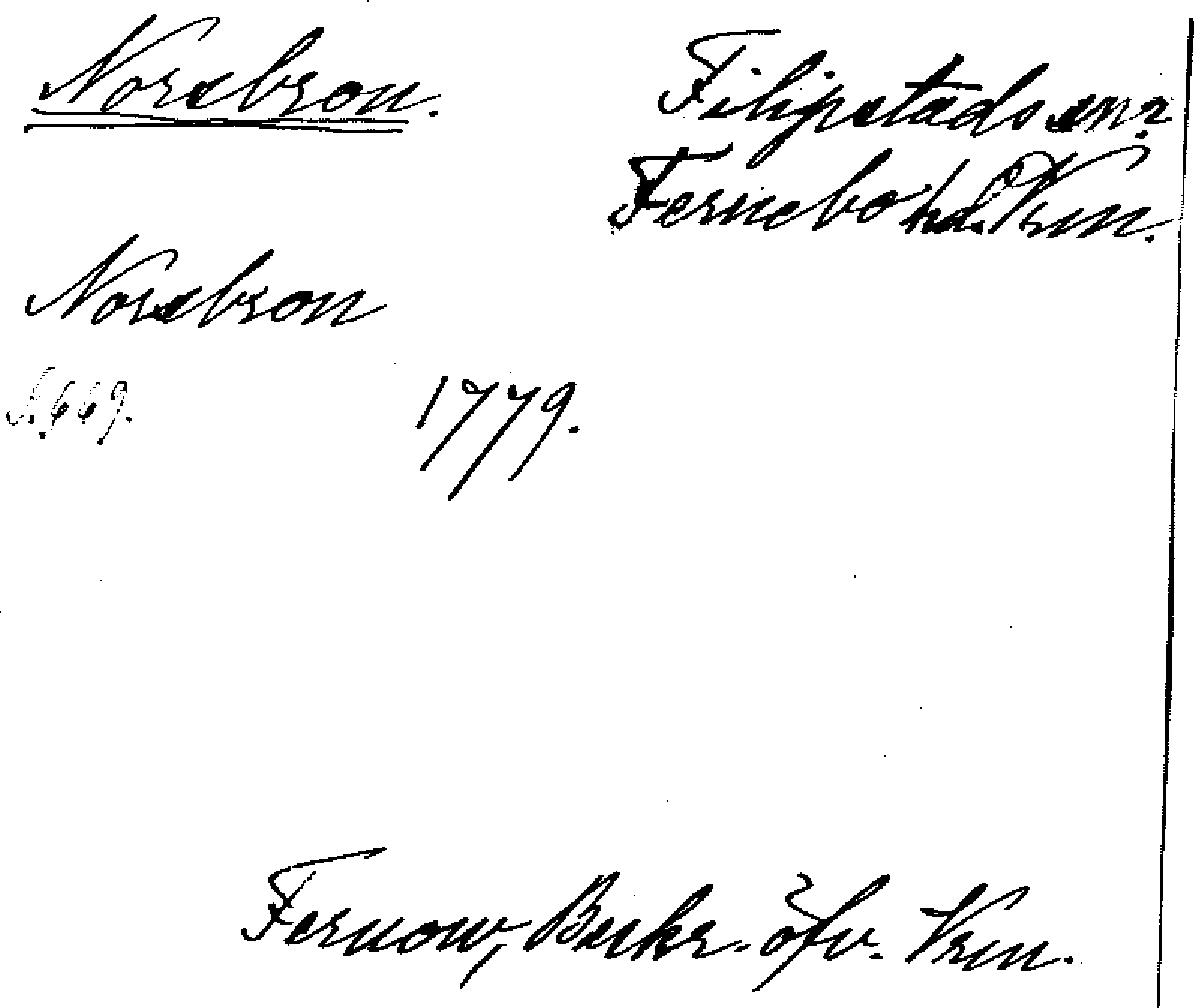 Norsbron.
Filipstads sn?
Fernebo hd. Vrm.
Norsbron
S. 669.
1779.
Fernow, Beskr. öfv. Vrm.